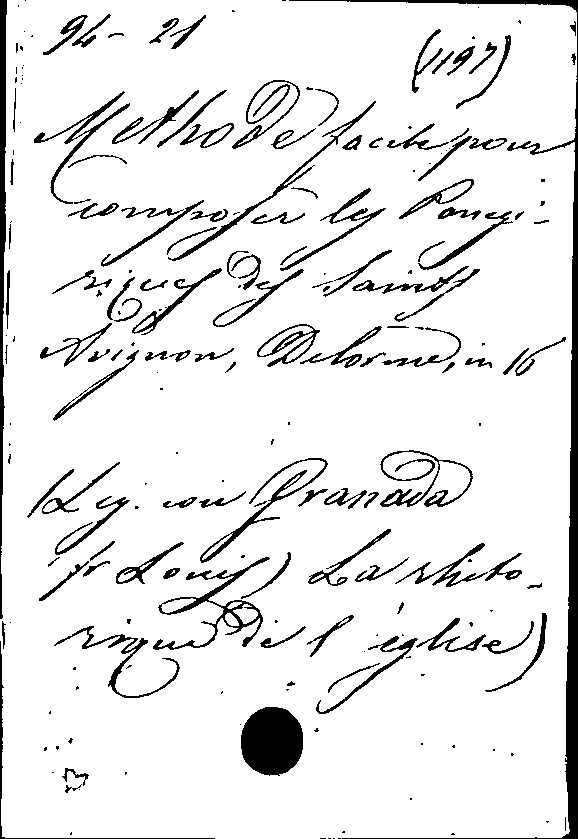 94-21
(1197)
Methode facile pour
composer les Panegi-
riques des Saints
Avignon, Delorme, in 16
(Leg. con Granada
fr Louis) La rheto-
rique de l'église)